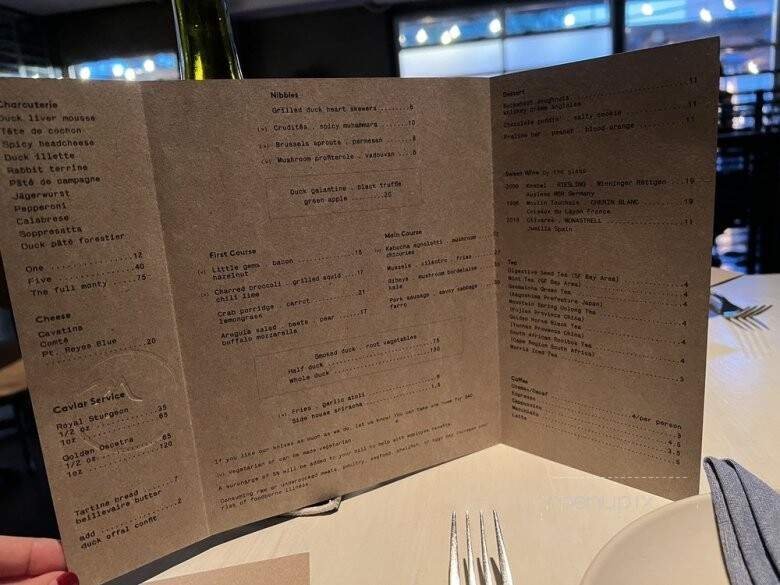 Charcuterie
Duck liver mousse
Tête de cochon
Spicy headcheese
Duck illette
Rabbit terrine
Pâté de campagne
Jägerwurst
Pepperoni
Calabrese
Soppresatta
Duck pâté forestier
One ............ 12
Five ........... 40
The full monty ..... 75
Cheese
Cavatina
Comté
Pt. Reyes Blue ....... 20
Caviar Service
Royal Sturgeon
1/2 oz ........ 35
1oz ........ 65
Golden Oscetra
1/2 oz ........ 65
1oz ........ 120
Tartine bread ....... 7
beillevaire butter
add ........ 2
duck offal confit
Nibbles
Grilled duck heart skewers ....... 6
(v) Crudités . spicy muhammara ....... 10
(v) Brussels sprouts . parmesan ....... 8
(v) Mushroom profiterole . vadouvan ....... 8
Duck galantine . black truffle
green apple ..... 20
First Course
(v) Little gems . bacon ....... 15
hazelnut
(v) Charred broccoli . grilled squid .... 17
chili lime
Crab porridge . carrot ....... 21
lemongrass
Arugula salad . beets . pear ...... 17
buffalo mozzarella
Main Course
(v) Kabocha agnolotti . mushroom
Mussels . cilantro . fries
Ribeye . mushroom bordelaise
kale
Pork sausage . savoy cabbage
farro
Smoked duck . root vegetables
Half duck ............ 75
Whole duck ............ 130
(v) Fries . garlic aioli
Side house sriracha
If you like our knives as much as we do, let us know! You can take one home for $40
(v) vegetarian or can be made vegetarian
A surcharge of 5% will be added to your bill to help with employee benefits.
Consuming raw or undercooked meats, poultry, seafood, shellfish, or eggs may increase your
risk of foodborne illness.
Dessert
doughnuts ............ 11
whiskey crème anglaise
Chocolate puddin' . salty cookie ....... 11
Praline bar . peanut . blood orange ....... 11
Sweet Wine by the glass
RIESLING . Winninger Röttgen ... 19
Auslese MSR Germany
Moulin Touchais . CHENIN BLANC ....... 19
Coteax du Layon France
Olivares . MONASTRELL ....... 11
Jumilla Spain
Tea
Digestive Seed Tea (SF Bay Area) ....... 4
Mint Tea (SF Bay Area) ....... 4
Genmaicha Green Tea
(Kagoshima Prefecture Japan) ....... 4
Mountain Spring Oolong Tea
(Fujian Province China) ....... 4
Golden Horse Black Tea
(Yunnan Province China) ....... 4
South African Rooibos Tea
(Cape Region South Africa) ....... 4
Iced Tea ....... 3
Coffee
Chemex/Decaf ....... 4/per person
Espresso ....... 3
Cappuccino ....... 4.5
Macchiato ....... 3.5
Latte ....... 5
menupix